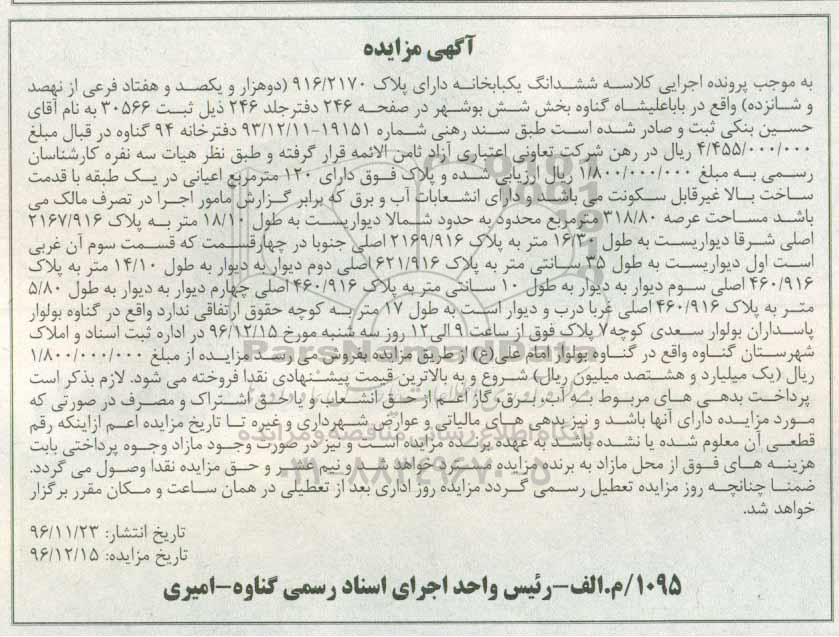 آگهی مزایده
به موجب پرونده اجرایی کلاسه ششدانگ یکبابخانه دارای پلاک ۹۱۶/۲۱۷۰ (دوهزار و یکصد و هفتاد فرعی از نهصد
و شانزده) واقع در باباعلیشاه گناوه بخش شش بوشهر در صفحه ۲۴۶ دفترجلد ۲۴۶ ذیل ثبت ۳۰۵۶۶ به نام آقای
حسین بنکی ثبت و صادر شده است طبق سند رهنی شماره ۱۹۱۵۱-۹۳/۱۲/۱۱ دفترخانه ۹۴ گناوه در قبال مبلغ
۴/۴۵۵/۰۰۰/۰۰۰ ریال در رهن شرکت تعاونی اعتباری آزاد ثامن الائمه قرار گرفته و طبق نظر هیات سه نفره کارشناسان
رسمی به مبلغ ۱/۸۰۰/۰۰۰/۰۰۰ ریال ارزیابی شده و پلاک فوق دارای ۱۲۰ مترمربع اعیانی در یک طبقه با قدمت
ساخت بالا غیرقابل سکونت می باشد و دارای انشعابات آب و برق که برابر گزارش مامور اجرا در تصرف مالک می
باشد مساحت عرصه ۳۱۸/۸۰ متر مربع محدود به حدود شمالا دیواریست به طول ۱۸/۱۰ متر به پلاک ۲۱۶۷/۹۱۶
اصلی شرقا دیواریست به طول ۱۶/۳۰ متر به پلاک ۲۱۶۹/۹۱۶ اصلی جنوبا در چهارقسمت که قسمت سوم آن غربی
است اول دیواریست به طول ۳۵ سانتی متر به پلاک ۶۲۱/۹۱۶ اصلی دوم دیوار به دیوار به طول ۱۴/۱۰ متر به پلاک
۴۶۰/۹۱۶ اصلی سوم دیوار به دیوار به طول ۱۰ سانتی متر به پلاک ۴۶۰/۹۱۶ اصلی چهارم دیوار به دیوار به طول ۵/۸۰
متر به پلاک ۴۶۰/۹۱۶ اصلی غربا درب و دیوار است به طول ۱۷ متر به کوچه حقوق ارتفاقی ندارد واقع در گناوه بولوار
پاسداران بولوار سعدی کوچه۷ پلاک فوق از ساعت ۹ الی۱۲ روز سه شنبه مورخ ۹۶/۱۲/۱۵ در اداره ثبت اسناد و املاک
شهرستان گناوه واقع در گناوه بولوار امام علی(ع) از طریق مزایده بفروش می رسد مزایده از مبلغ ۱/۸۰۰/۰۰۰/۰۰۰
ریال (یک میلیارد و هشتصد میلیون ریال) شروع و به بالاترین قیمت پیشنهادی نقدا فروخته می شود. لازم بذکر است
پرداخت بدهی های مربوط به آب، برق، گاز اعم از حق انشعاب و یا حق اشتراک و مصرف در صورتی که
مورد مزایده دارای آنها باشد و نیز بدهی های مالیاتی و عوارض شهرداری و غیره تا تاریخ مزایده اعم ازاینکه رقم
قطعی آن معلوم شده یا نشده باشد به عهده برنده مزایده است و نیز در صورت وجود مازاد وجوه پرداختی بابت
هزینه های فوق از محل مازاد به برنده مزایده مسترد خواهد شد و نیم عشر و حق مزایده نقدا وصول می گردد.
ضمنا چنانچه روز مزایده تعطیل رسمی گردد مزایده روز اداری بعد از تعطیلی در همان ساعت و مکان مقرر برگزار
خواهد شد.
تاریخ انتشار: ۹۶/۱۱/۲۳
تاریخ مزایده: ۹۶/۱۲/۱۵
۱۰۹۵/م.الف-رئیس واحد اجرای اسناد رسمی گناوه-امیری
ParsNamadData